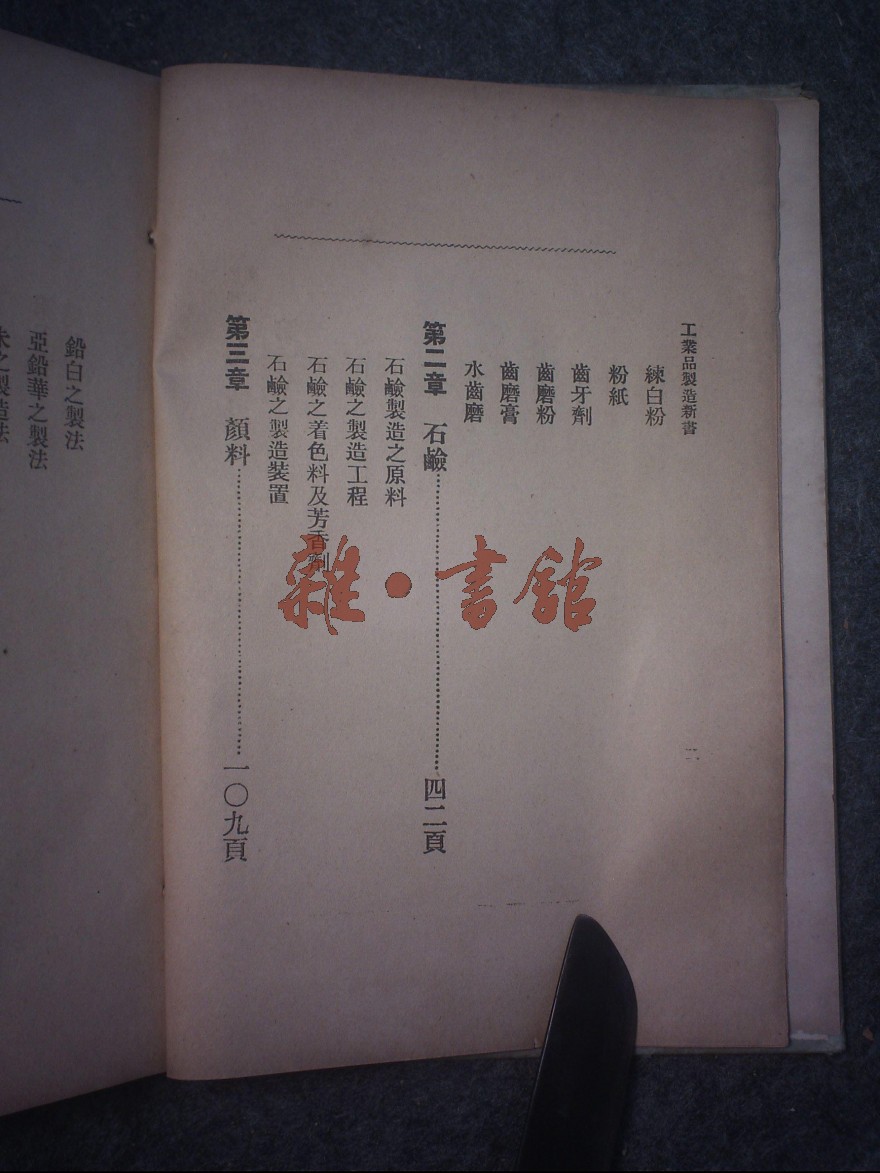 工業品製造新書
練白粉
粉紙
齒牙劑
齒磨粉
齒磨膏
水齒磨
第二章 石鹼……四二頁
石鹼製造之原料
石鹼之製造工程
石鹼之着色料及芳香劑
石鹼之製造裝置
第三章 顏料……一〇九頁
鉛白之製法
亞鉛華之製法
之製造法
雜·書館